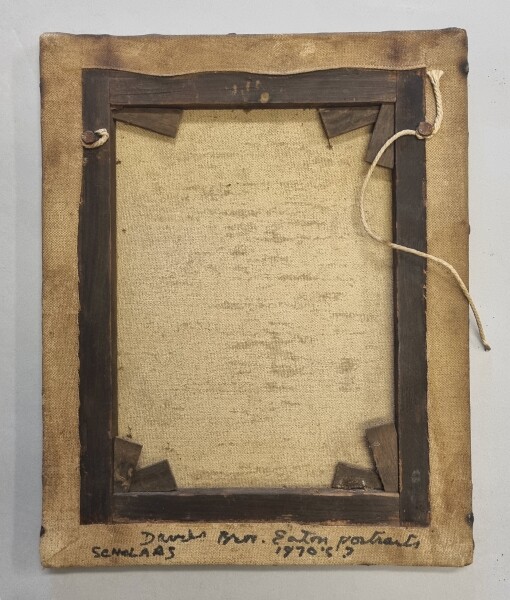 Davis Bros. Eaton portraits
SCHOLARS 1870's?